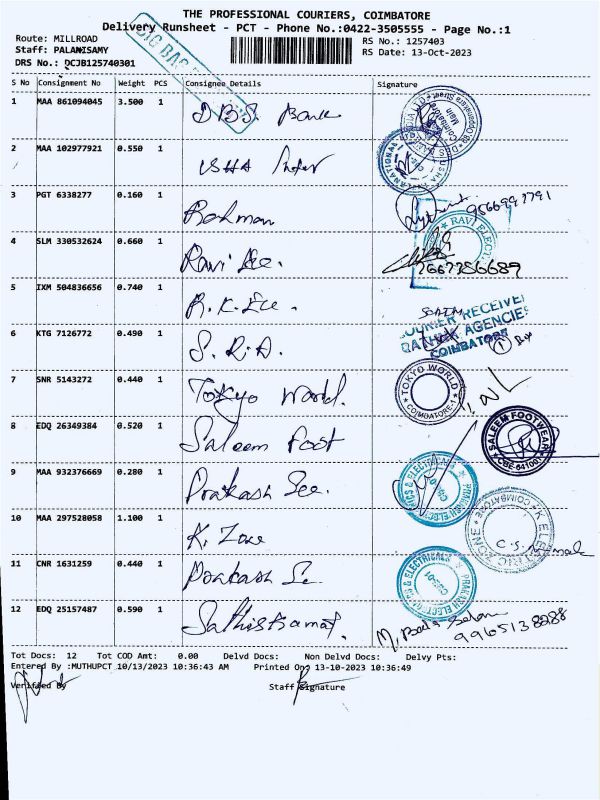 THE PROFESSIONAL COURIERS, COIMBATORE
Delivery Runsheet - PCT - Phone No.:0422-3505555 - Page No.:1
Route: MILLROAD
RS No.: 1257403
Staff: PALANISAMY
RS Date: 13-Oct-2023
DRS No.: DCJB125740301
BIG BAG
S No Consignment No Weight PCS Consignee Details Signature
1 MAA 861094045 3.500 1 DBS Bank
2 MAA 102977921 0.550 1 USHA
3 PGT 6338277 0.160 1 Rahman 9566997791
4 SLM 330532624 0.660 1 Ravi Ele. RAVI ELEC 7667386689
5 IXM 504836656 0.740 1 R.K. Ele.
COURIER RECEIVE
AGENCIES
COIMBATORE
6 KTG 7126772 0.490 1 S.R.A.
7 SNR 5143272 0.440 1 Tokyo World. TOKYO WORLD COIMBATORE-1
8 EDQ 26349384 0.520 1 Saleem Foot SALEEM FOOTWEAR CBE-641001
9 MAA 932376669 0.280 1 Prakash Ele. PRAKASH ELECT & ELECTRICALS
10 MAA 297528058 1.100 1 K. Zone COIMBATORE
11 CNR 1631259 0.440 1 Prakash Ele. & ELECTRICALS PRAKASH ELECT
12 EDQ 25157487 0.590 1 9965138288
Tot Docs: 12 Tot COD Amt: 0.00 Delvd Docs: Non Delvd Docs: Delvy Pts:
Entered By :MUTHUPCT 10/13/2023 10:36:43 AM Printed On: 13-10-2023 10:36:49
Verified By Staff Signature